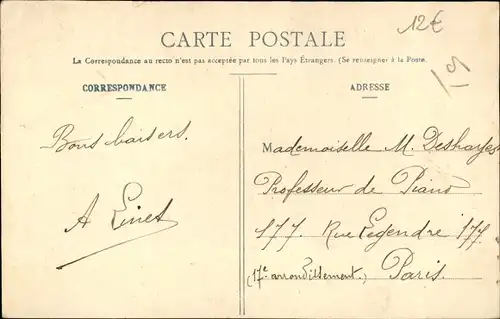 12€
CARTE POSTALE
La Correspondance au recto n'est pas acceptée par tous les Pays Étrangers. (Se renseigner à la Poste.
19
CORRESPONDANCE
Bons baisers.
A
ADRESSE
Mademoiselle M. Deshayes
Professeur de Piano
177. Rue Legendre 177
(17e arrondissement.) Paris.